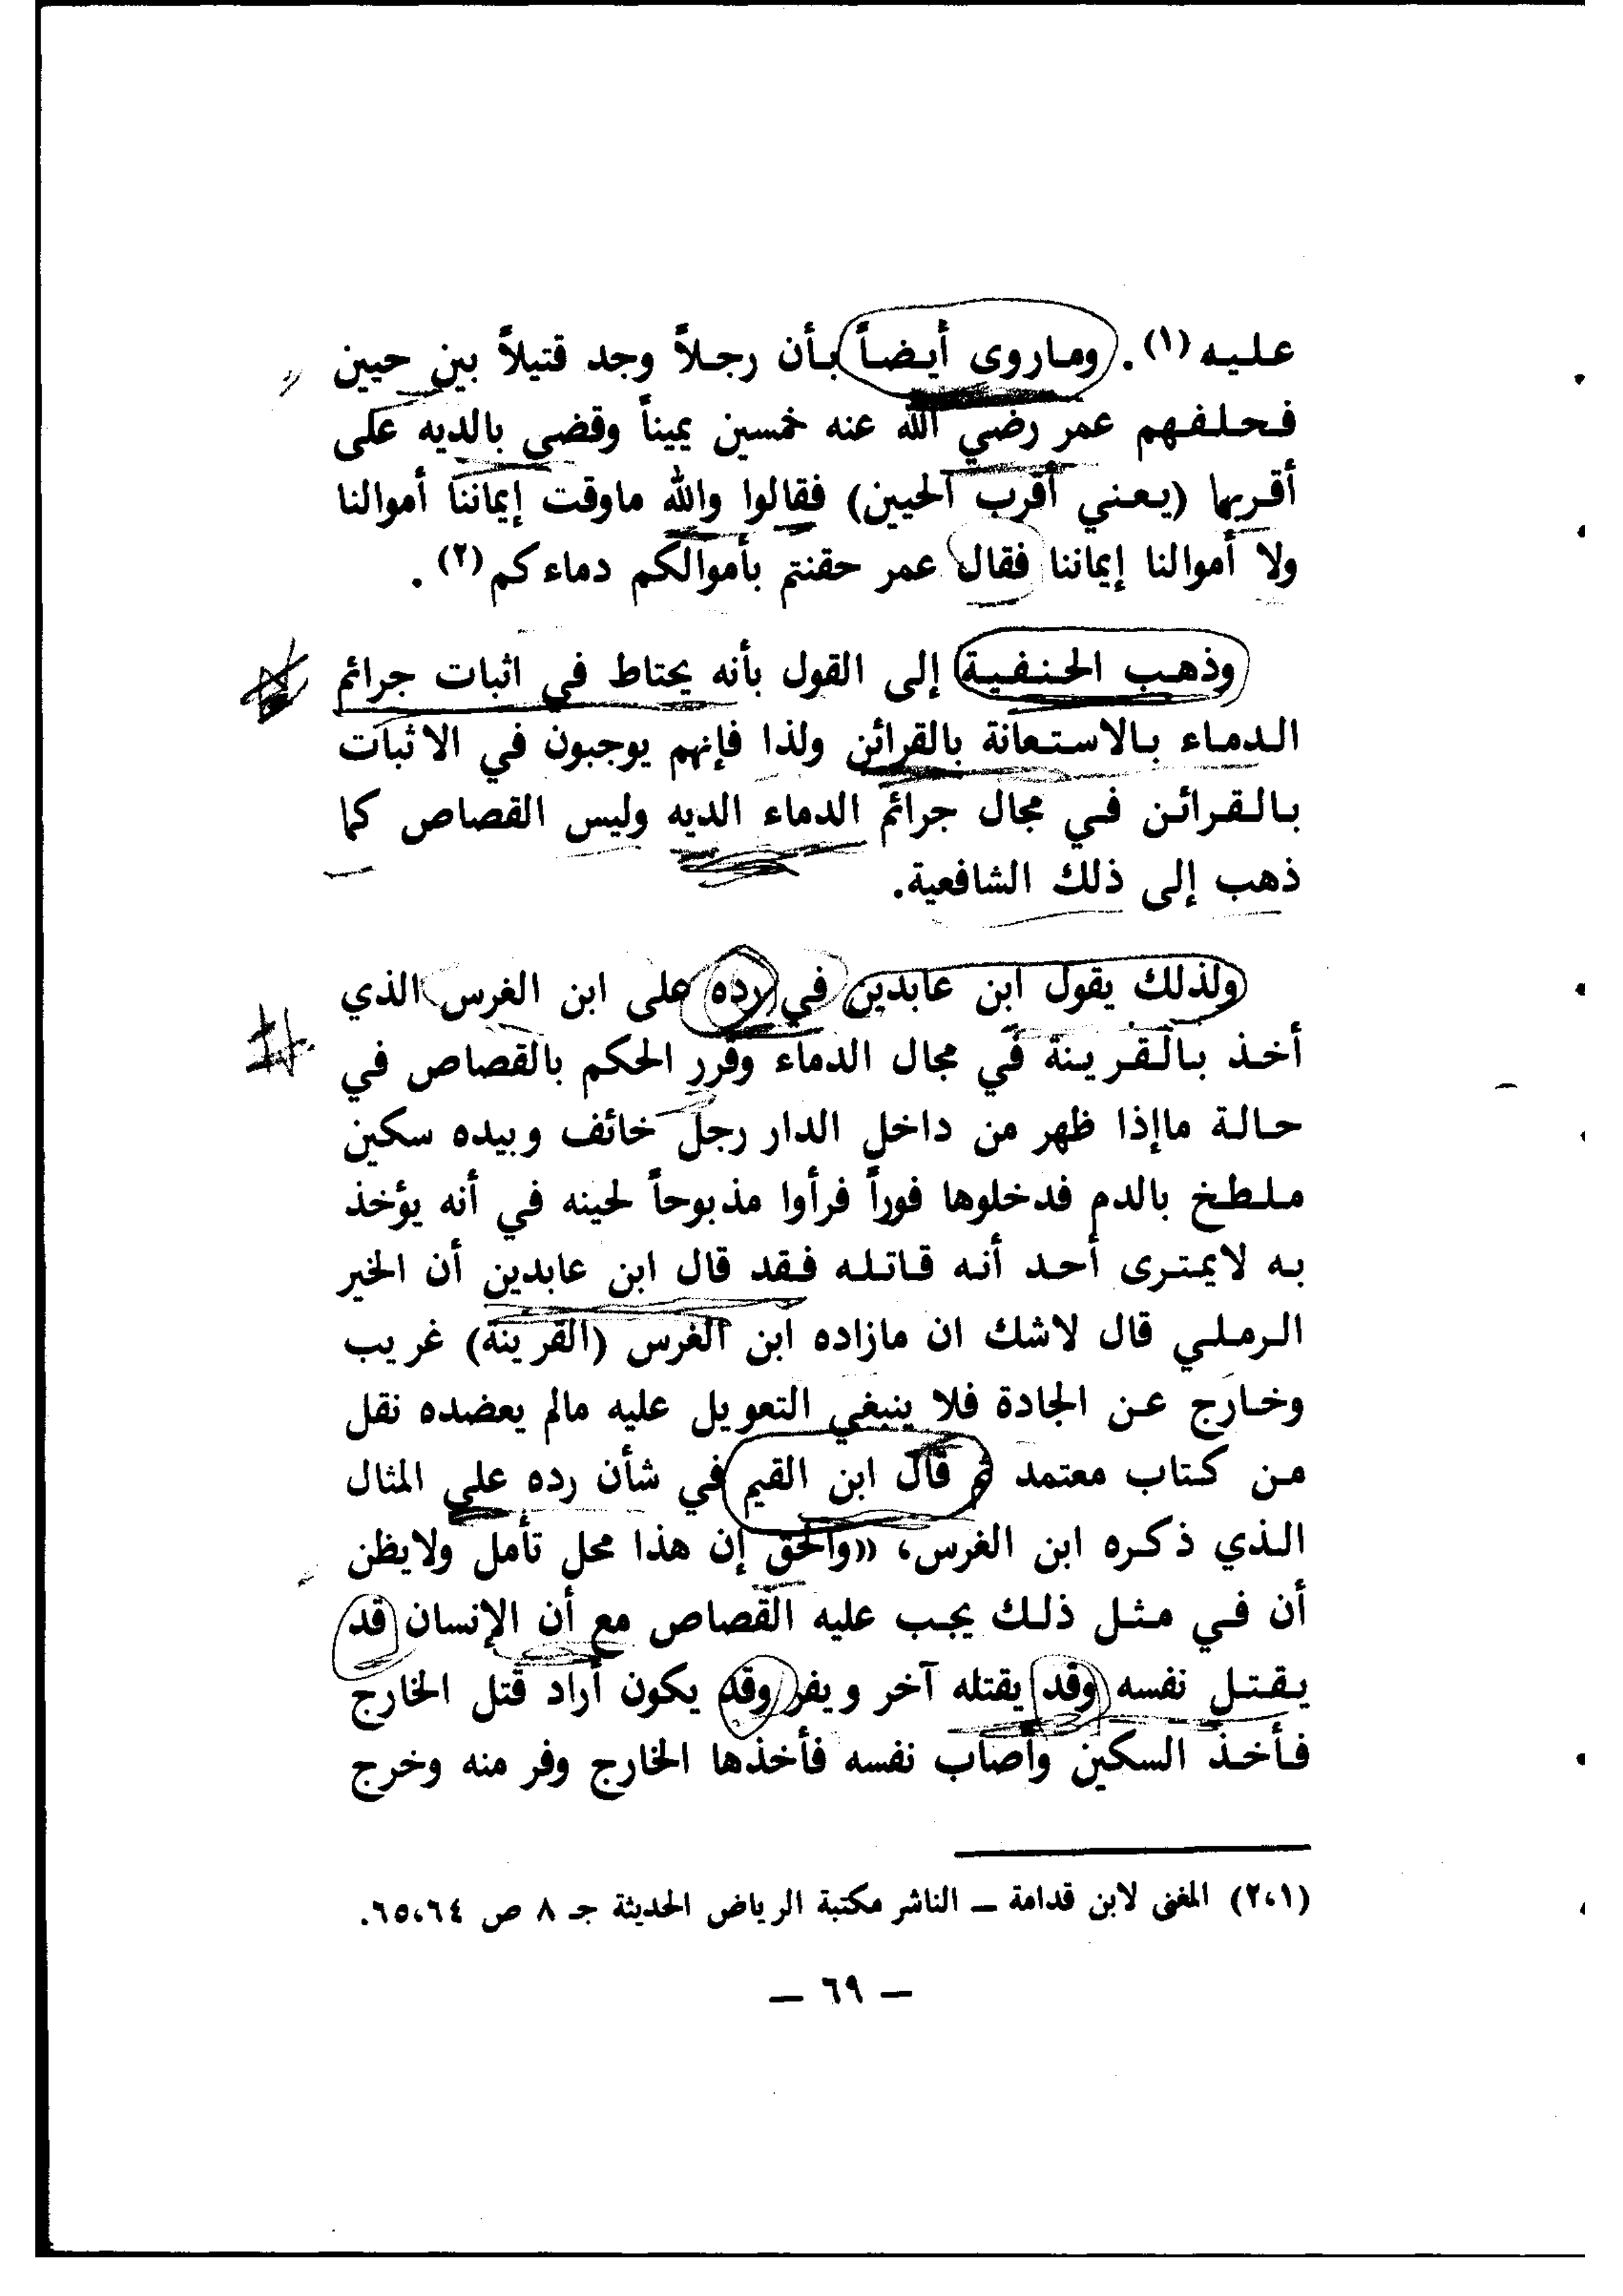 عليه (١). وماروى أيضاً بأن رجلاً وجد قتيلاً بين حيين
فحلفهم عمر رضي الله عنه خمسين يميناً وقضى بالديه على
أقربها (يعني أقرب الحيين) فقالوا والله ماوقت إيماننا أموالنا
ولا أموالنا إيماننا فقال عمر حقنتم بأموالكم دماءكم (٢).
وذهب الحنفية إلى القول بأنه يحتاط في اثبات جرائم
الدماء بالاستعانة بالقرائن ولذا فإنهم يوجبون في الاثبات
بالقرائن في مجال جرائم الدماء الديه وليس القصاص كما
ذهب إلى ذلك الشافعية.
ولذلك يقول ابن عابدين في رده على ابن الغرس الذي
أخذ بالقرينة في مجال الدماء وقرر الحكم بالقصاص في
حالة ماإذا ظهر من داخل الدار رجل خائف وبيده سكين
ملطخ بالدم فدخلوها فوراً فرأوا مذبوحاً لحينه في أنه يؤخذ
به لايمترى أحد أنه قاتله فقد قال ابن عابدين أن الخير
الرملي قال لاشك ان مازاده ابن الغرس (القرينة) غريب
وخارج عن الجادة فلا ينبغي التعويل عليه مالم يعضده نقل
من كتاب معتمد ثم قال ابن القيم في شأن رده على المثال
الذي ذكره ابن الغرس، «والحق إن هذا محل تأمل ولايظن
أن في مثل ذلك يجب عليه القصاص مع أن الإنسان قد
يقتل نفسه وقد يقتله آخر ويفر وقد يكون أراد قتل الخارج
فأخذ السكين وأصاب نفسه فأخذها الخارج وفر منه وخرج
(٢،١) المغنى لابن قدامة ــ الناشر مكتبة الرياض الحديثة جـ ٨ ص ٦٥،٦٤.
— ٦٩ —